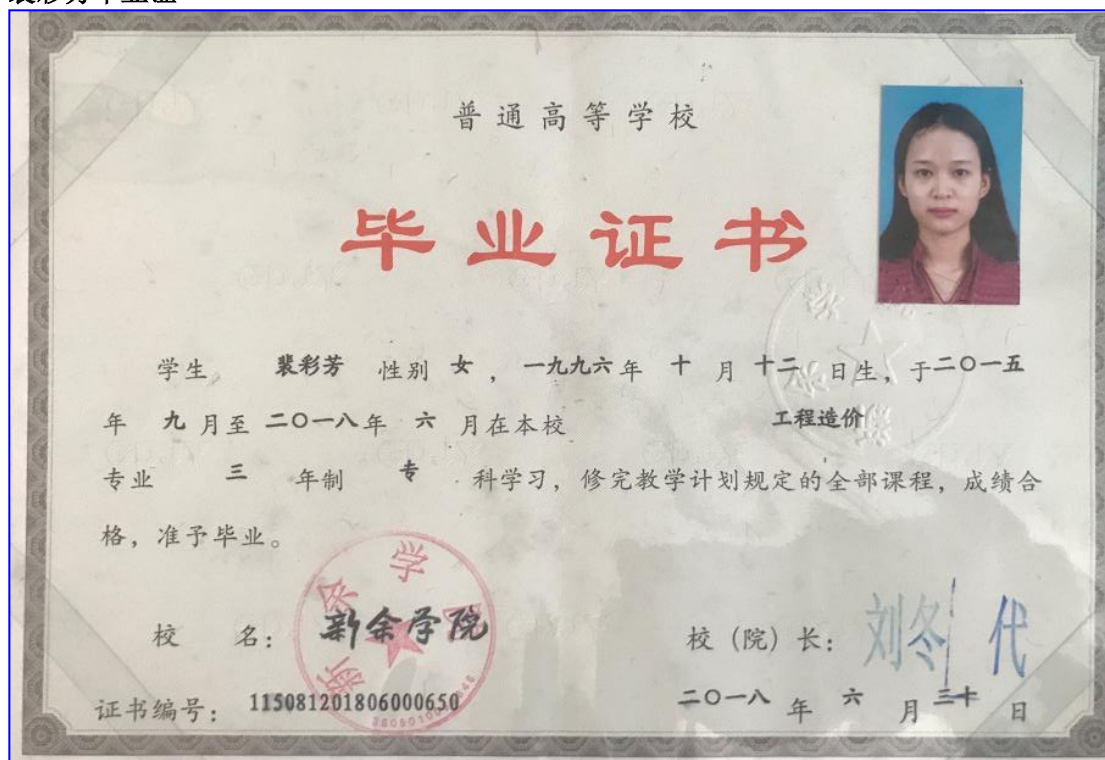 普通高等学校
毕业证书
学生 裴彩芳 性别 女 ，一九九六年 十 月 十二 日生，于二〇一五
年 九 月至 二〇一八年 六 月在本校 工程造价
专业 三 年制 专 科学习，修完教学计划规定的全部课程，成绩合
格，准予毕业。
新余学院
校 名：新余学院
校（院）长：刘冬代
证书编号：115081201806000650
二〇一八 年 六 月 三十 日